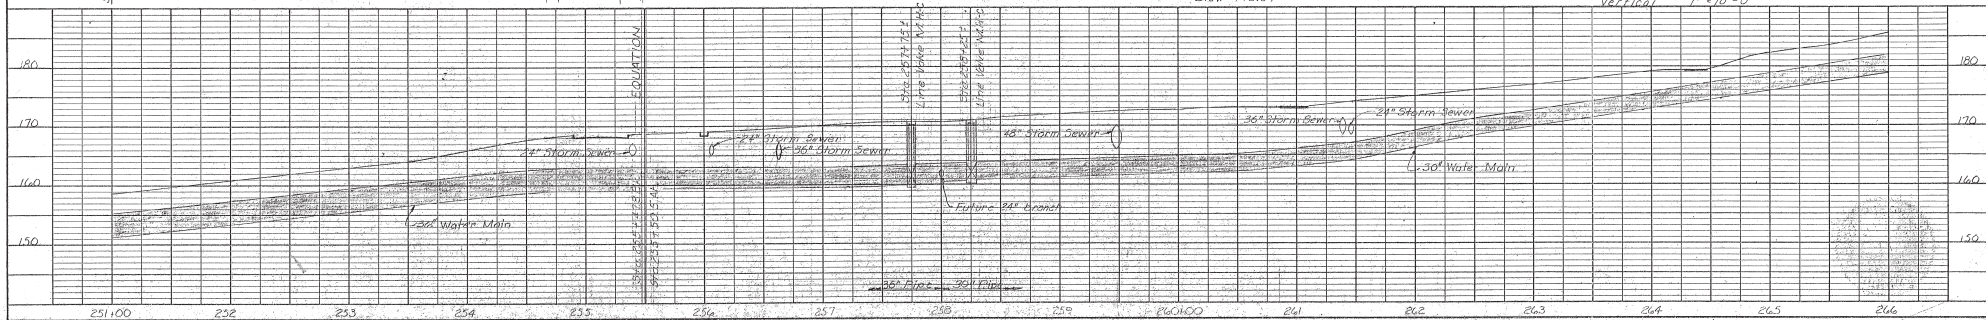 180
170
160
150
EQUATION
Line Valve M.H.
Line Valve M.H.
24" Storm Sewer
24" Storm Sewer
36" Storm Sewer
48" Storm Sewer
36" Storm Sewer
24" Storm Sewer
36" Water Main
30" Water Main
Future 24" branch
36" Pipe
30" Pipe
180
170
160
150
251+00
252
253
254
255
256
257
258
259
260+00
261
262
263
264
265
266